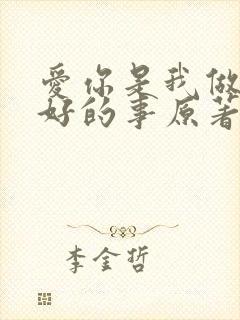 爱你是我做
好的事原著
李金哲